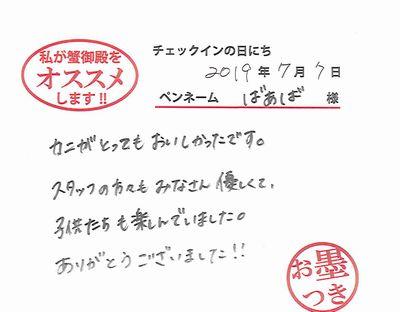 私が蟹御殿を
オススメ
します!!
チェックインの日にち
2019年7月7日
ペンネーム ばあば 様
カニがとってもおいしかったです。
スタッフの方々もみなさん優しくて、
子供たちも楽しんでいました。
ありがとうございました!!
お墨
つき